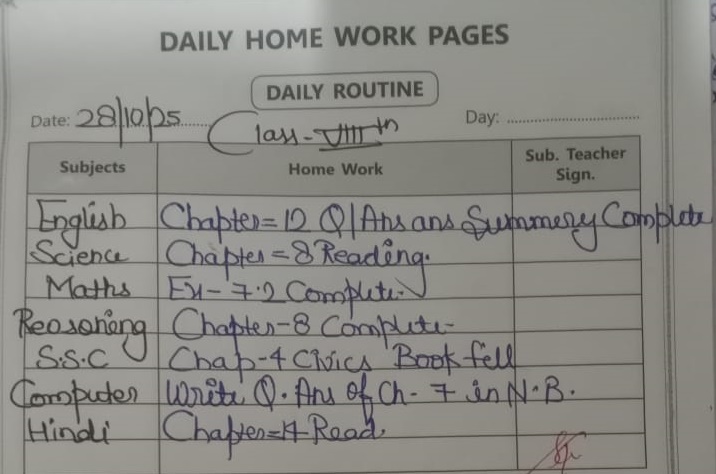 DAILY HOME WORK PAGES
DAILY ROUTINE
Date: 28/10/25 Day:
Class - VIIIth
Subjects Home Work Sub. Teacher Sign.
English Chapter = 12 Q/Ans ans Summery Complete
Science Chapter = 8 Reading.
Maths Ex - 7.2 Complete.
Reasoning Chapter - 8 Complete -
S.S.C Chap - 4 Civics Book fell
Computer Write Q. Ans of Ch - 7 in N.B.
Hindi Chapter = 14 Read.